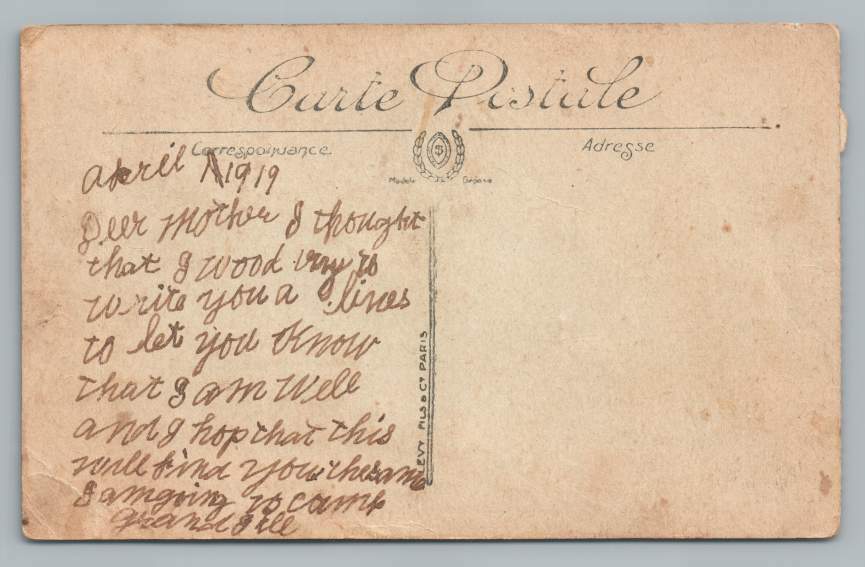 Carte Postale
Correspondance
Adresse
Modèle Déposé
April 1 1919
Deer Mother I thought
that I wood try to
write you a lines
to let you Know
that I am Well
and I hop that this
will find you the same
I am going to camp
grand
LEVY FILS & Cᴵᴱ PARIS